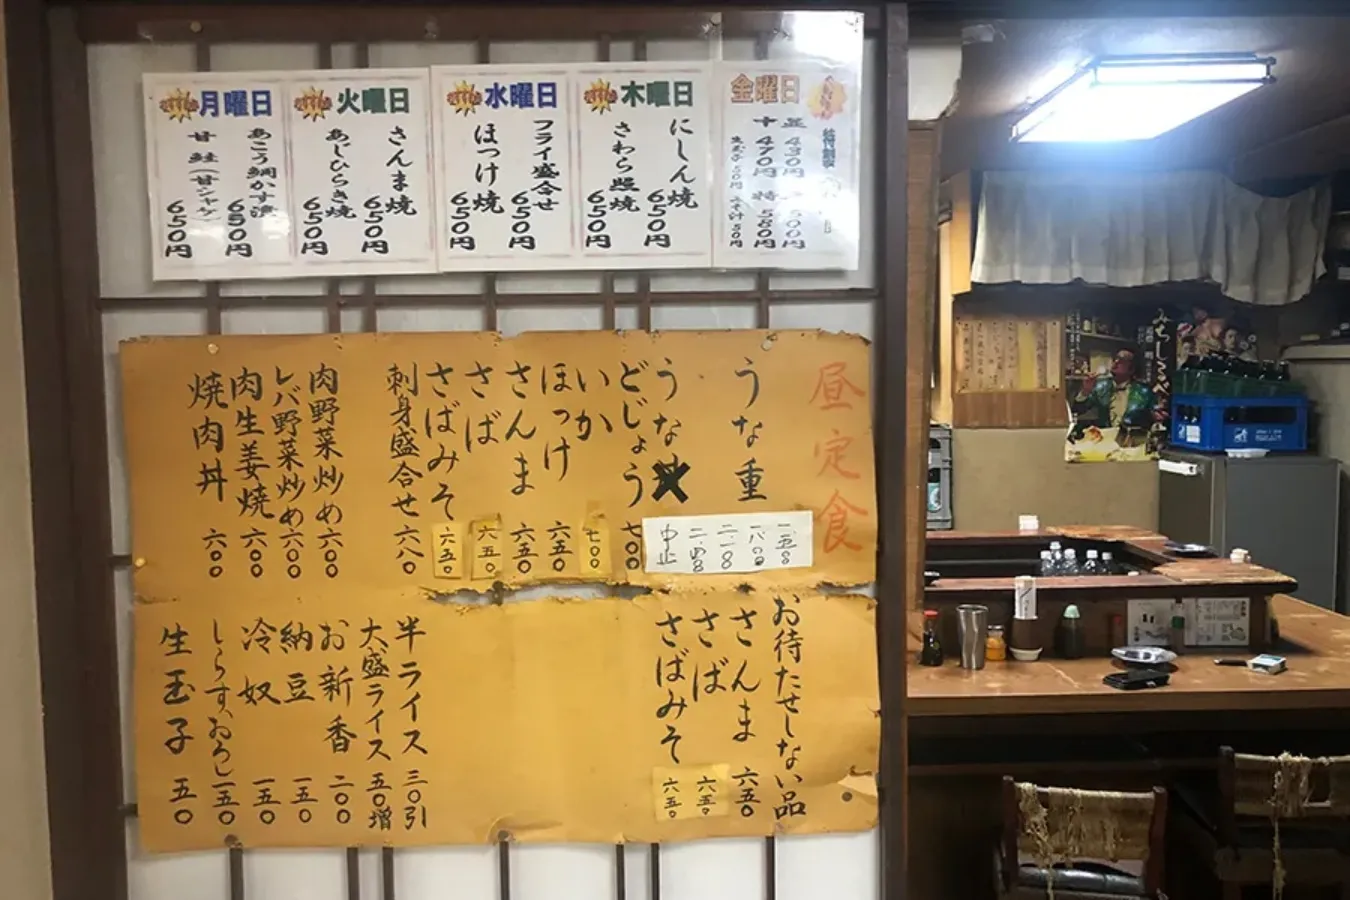 月曜日
あこう鯛かす漬
650円
甘鮭(甘シャケ)
650円
火曜日
さんま焼
650円
あじひらき焼
650円
水曜日
フライ盛合せ
650円
ほっけ焼
650円
木曜日
にしん焼
650円
さわら照焼
650円
金曜日
並 430円
470円
特 580円
500円
生玉子 50円
みそ汁 50円
昼定食
うな重
うな
どじょう 七〇〇
いか 七〇〇
ほっけ 六五〇
さんま 六五〇
さば 六五〇
さばみそ 六五〇
刺身盛合せ 六八〇
肉野菜炒め 六〇〇
レバ野菜炒め 六〇〇
肉生姜焼 六〇〇
焼肉丼 六〇〇
中止
お待たせしない品
さんま 六五〇
さば 六五〇
さばみそ 六五〇
半ライス 三〇引
大盛ライス 五〇増
お新香 二〇〇
納豆 一五〇
冷奴 一五〇
しらすおろし 一五〇
生玉子 五〇
みちしるべ